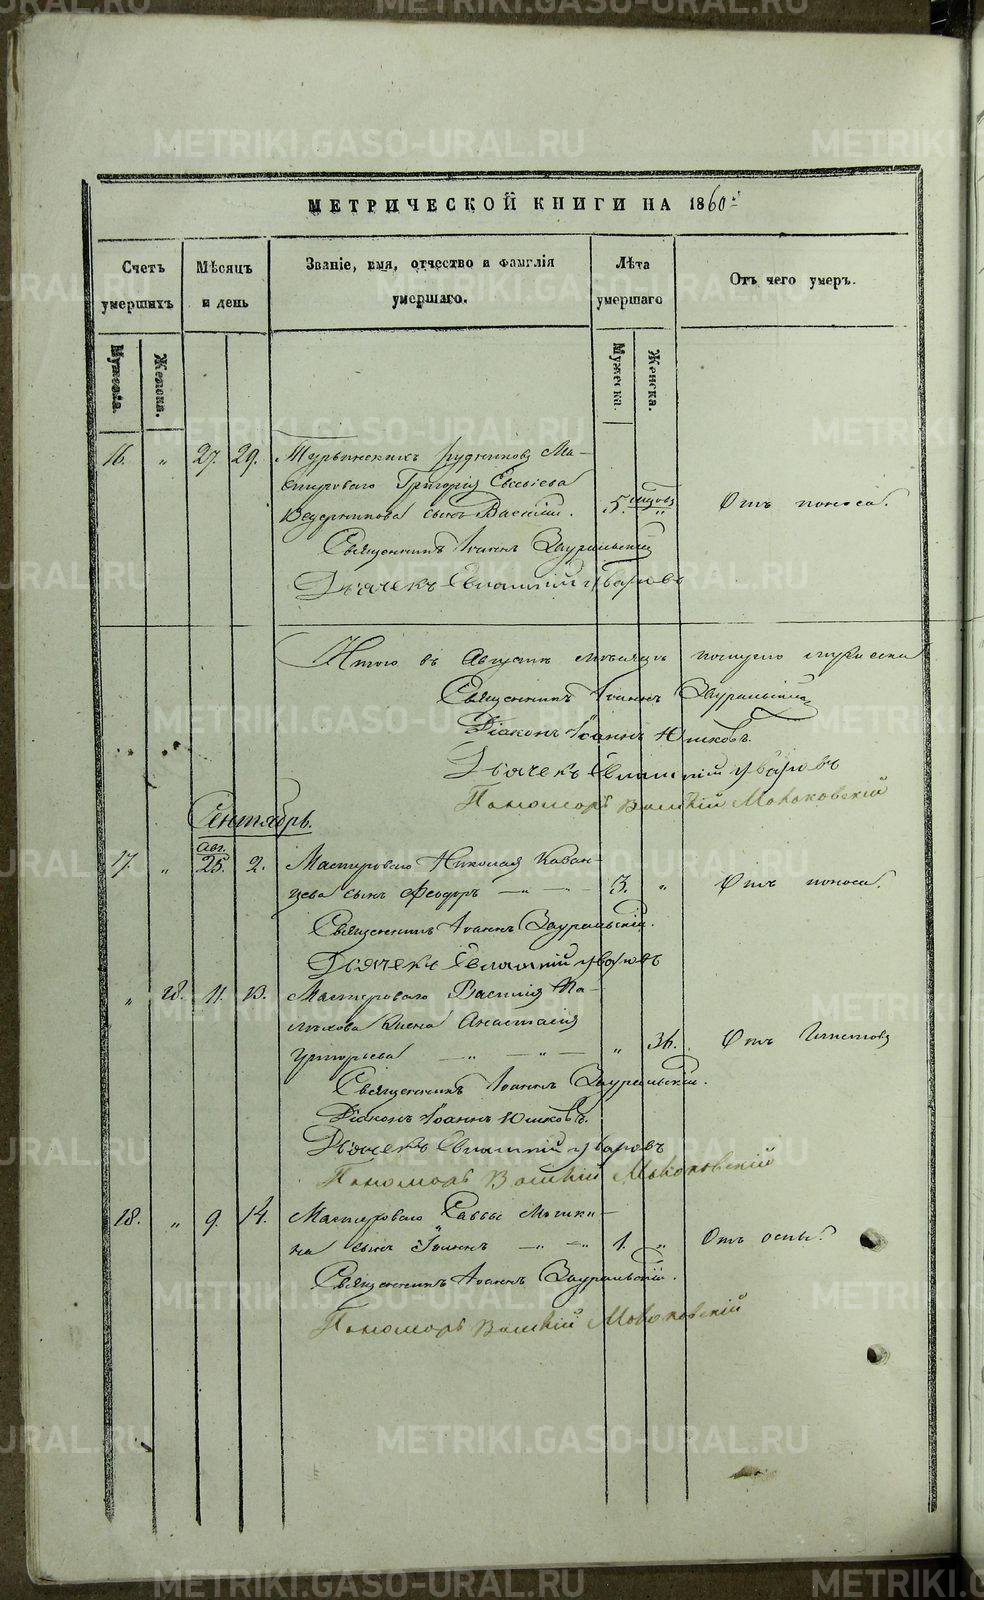 METRIKI.GASO-URAL.RU
МЕТРИЧЕСКОЙ КНИГИ НА 1860 й
Счетъ умершихъ
Мѣсяцъ и день
Званіе, имя, отчество и фамилія умершаго.
Лѣта умершаго
Отъ чего умеръ.
Мужеска.
Женска.
Мужеска.
Женска.
16. " 27. 29. Турьинскихъ рудниковъ Ма-
староваго Григорія Евсѣева
сынъ Василій. 5. " Отъ поноса.
Священникъ Іоаннъ Зауральскій
Дьячекъ Уваровъ
Итого въ Августѣ мѣсяцѣ мужеска
Священникъ Іоаннъ Зауральскій
Діаконъ Іоаннъ Юшковъ.
Дьячекъ Уваровъ
Пономарь Василій
Сентябрь.
Авг.
17. " 25. 2. Мастероваго Николая Кабан-
цева сынъ Феодоръ 3. " Отъ поноса.
Священникъ Іоаннъ Зауральскій.
Дьячекъ Уваровъ
" 18. 11. 13. Мастероваго Василія
жена Анастасія
Григорьева " 36. Отъ
Священникъ Іоаннъ Зауральскій.
Діаконъ Іоаннъ Юшковъ.
Дьячекъ Уваровъ
Пономарь Василій
18. " 9. 14. Мастероваго Саввы
на сынъ Іоаннъ 1. " Отъ оспы.
Священникъ Іоаннъ Зауральскій.
Пономарь Василій